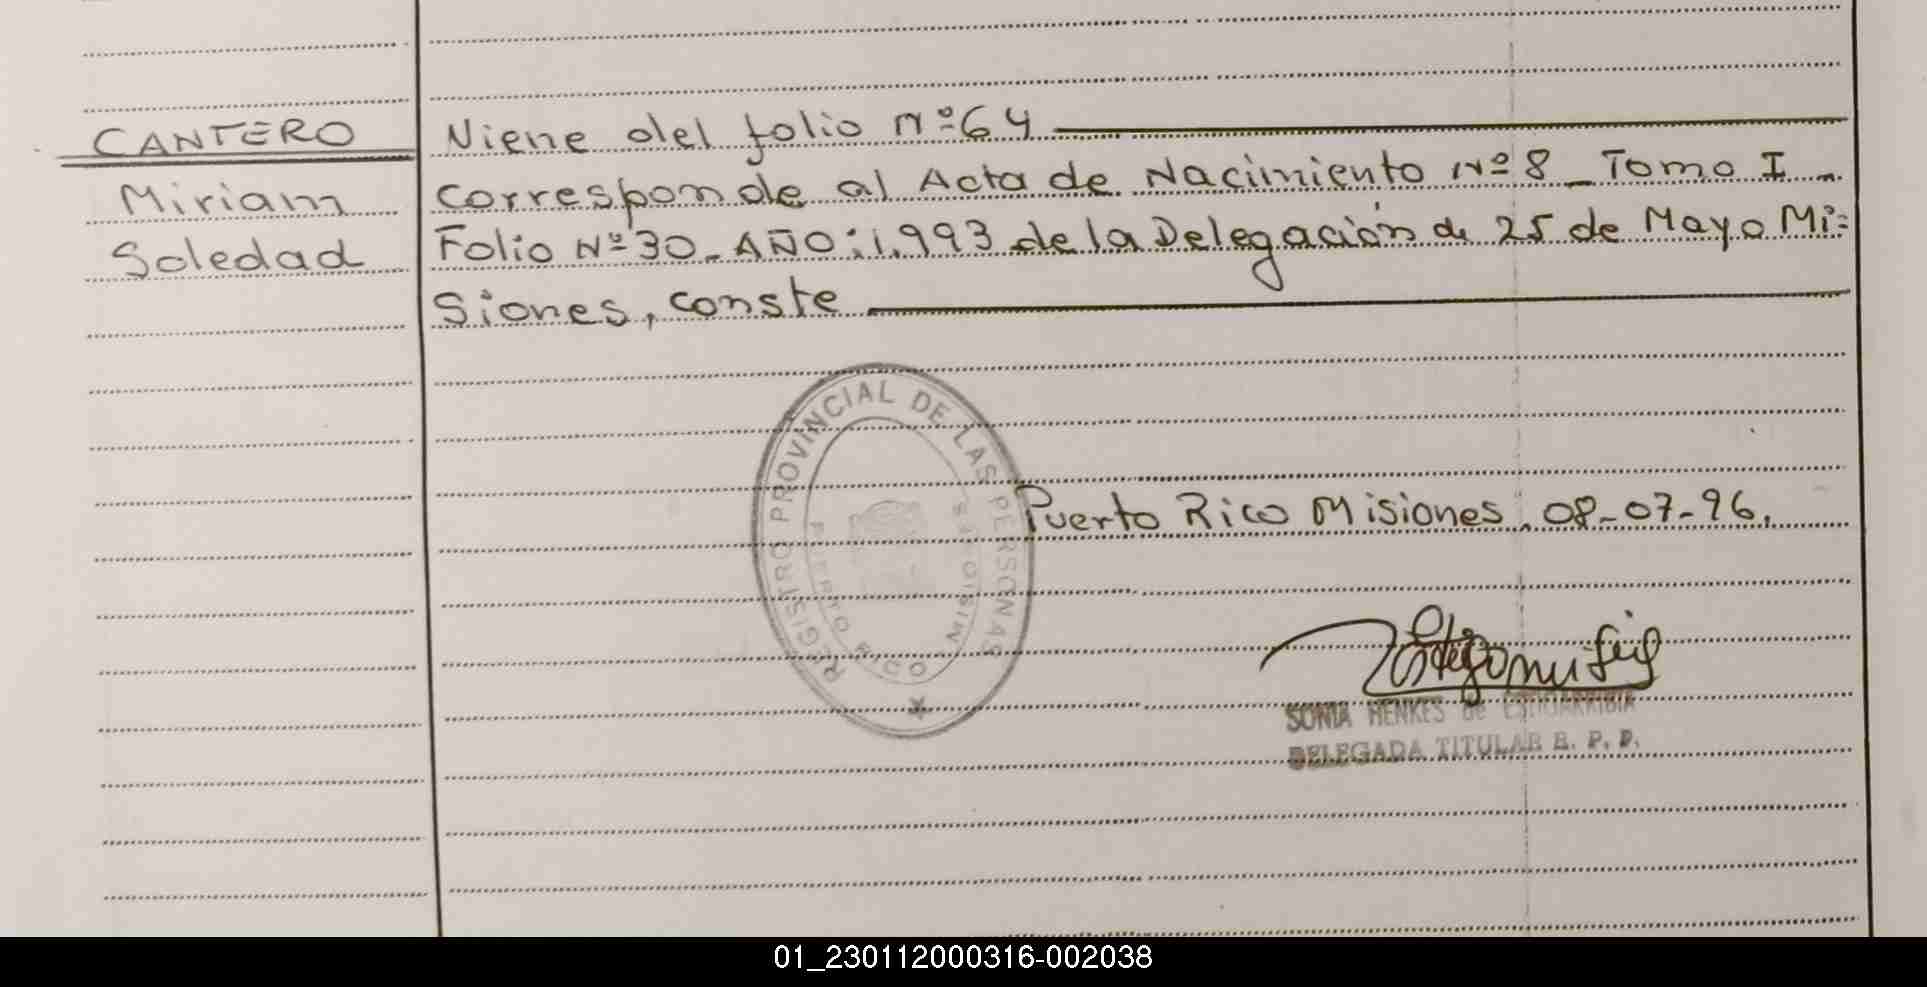 CANTERO
Miriam
Soledad
Viene del folio Nº 64
corresponde al Acta de Nacimiento Nº 8_ Tomo I -
Folio Nº 30_ AÑO: 1.993 de la Delegación de 25 de Mayo Mi=
siones, conste
REGISTRO PROVINCIAL DE LAS PERSONAS
PUERTO RICO MISIONES
Puerto Rico Misiones, 08-07-96.
SONIA HENKES de
DELEGADA TITULAR R. P. P.
01_230112000316-002038